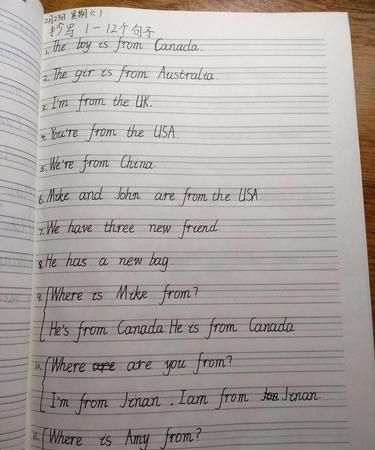 2月23日 星期六）
抄写1-12个句子
1. The boy is from Canada.
2. The gir is from Australia.
3. I'm from the UK.
4. You're from the USA.
5. We're from China.
6. Mike and John are from the USA.
7. We have three new friend.
8. He has a new bag.
9. Where is Mike from?
He's from Canada He is from Canada
10. Where are are you from?
I'm from Jinan. I am from Jinan.
11. Where is Amy from?